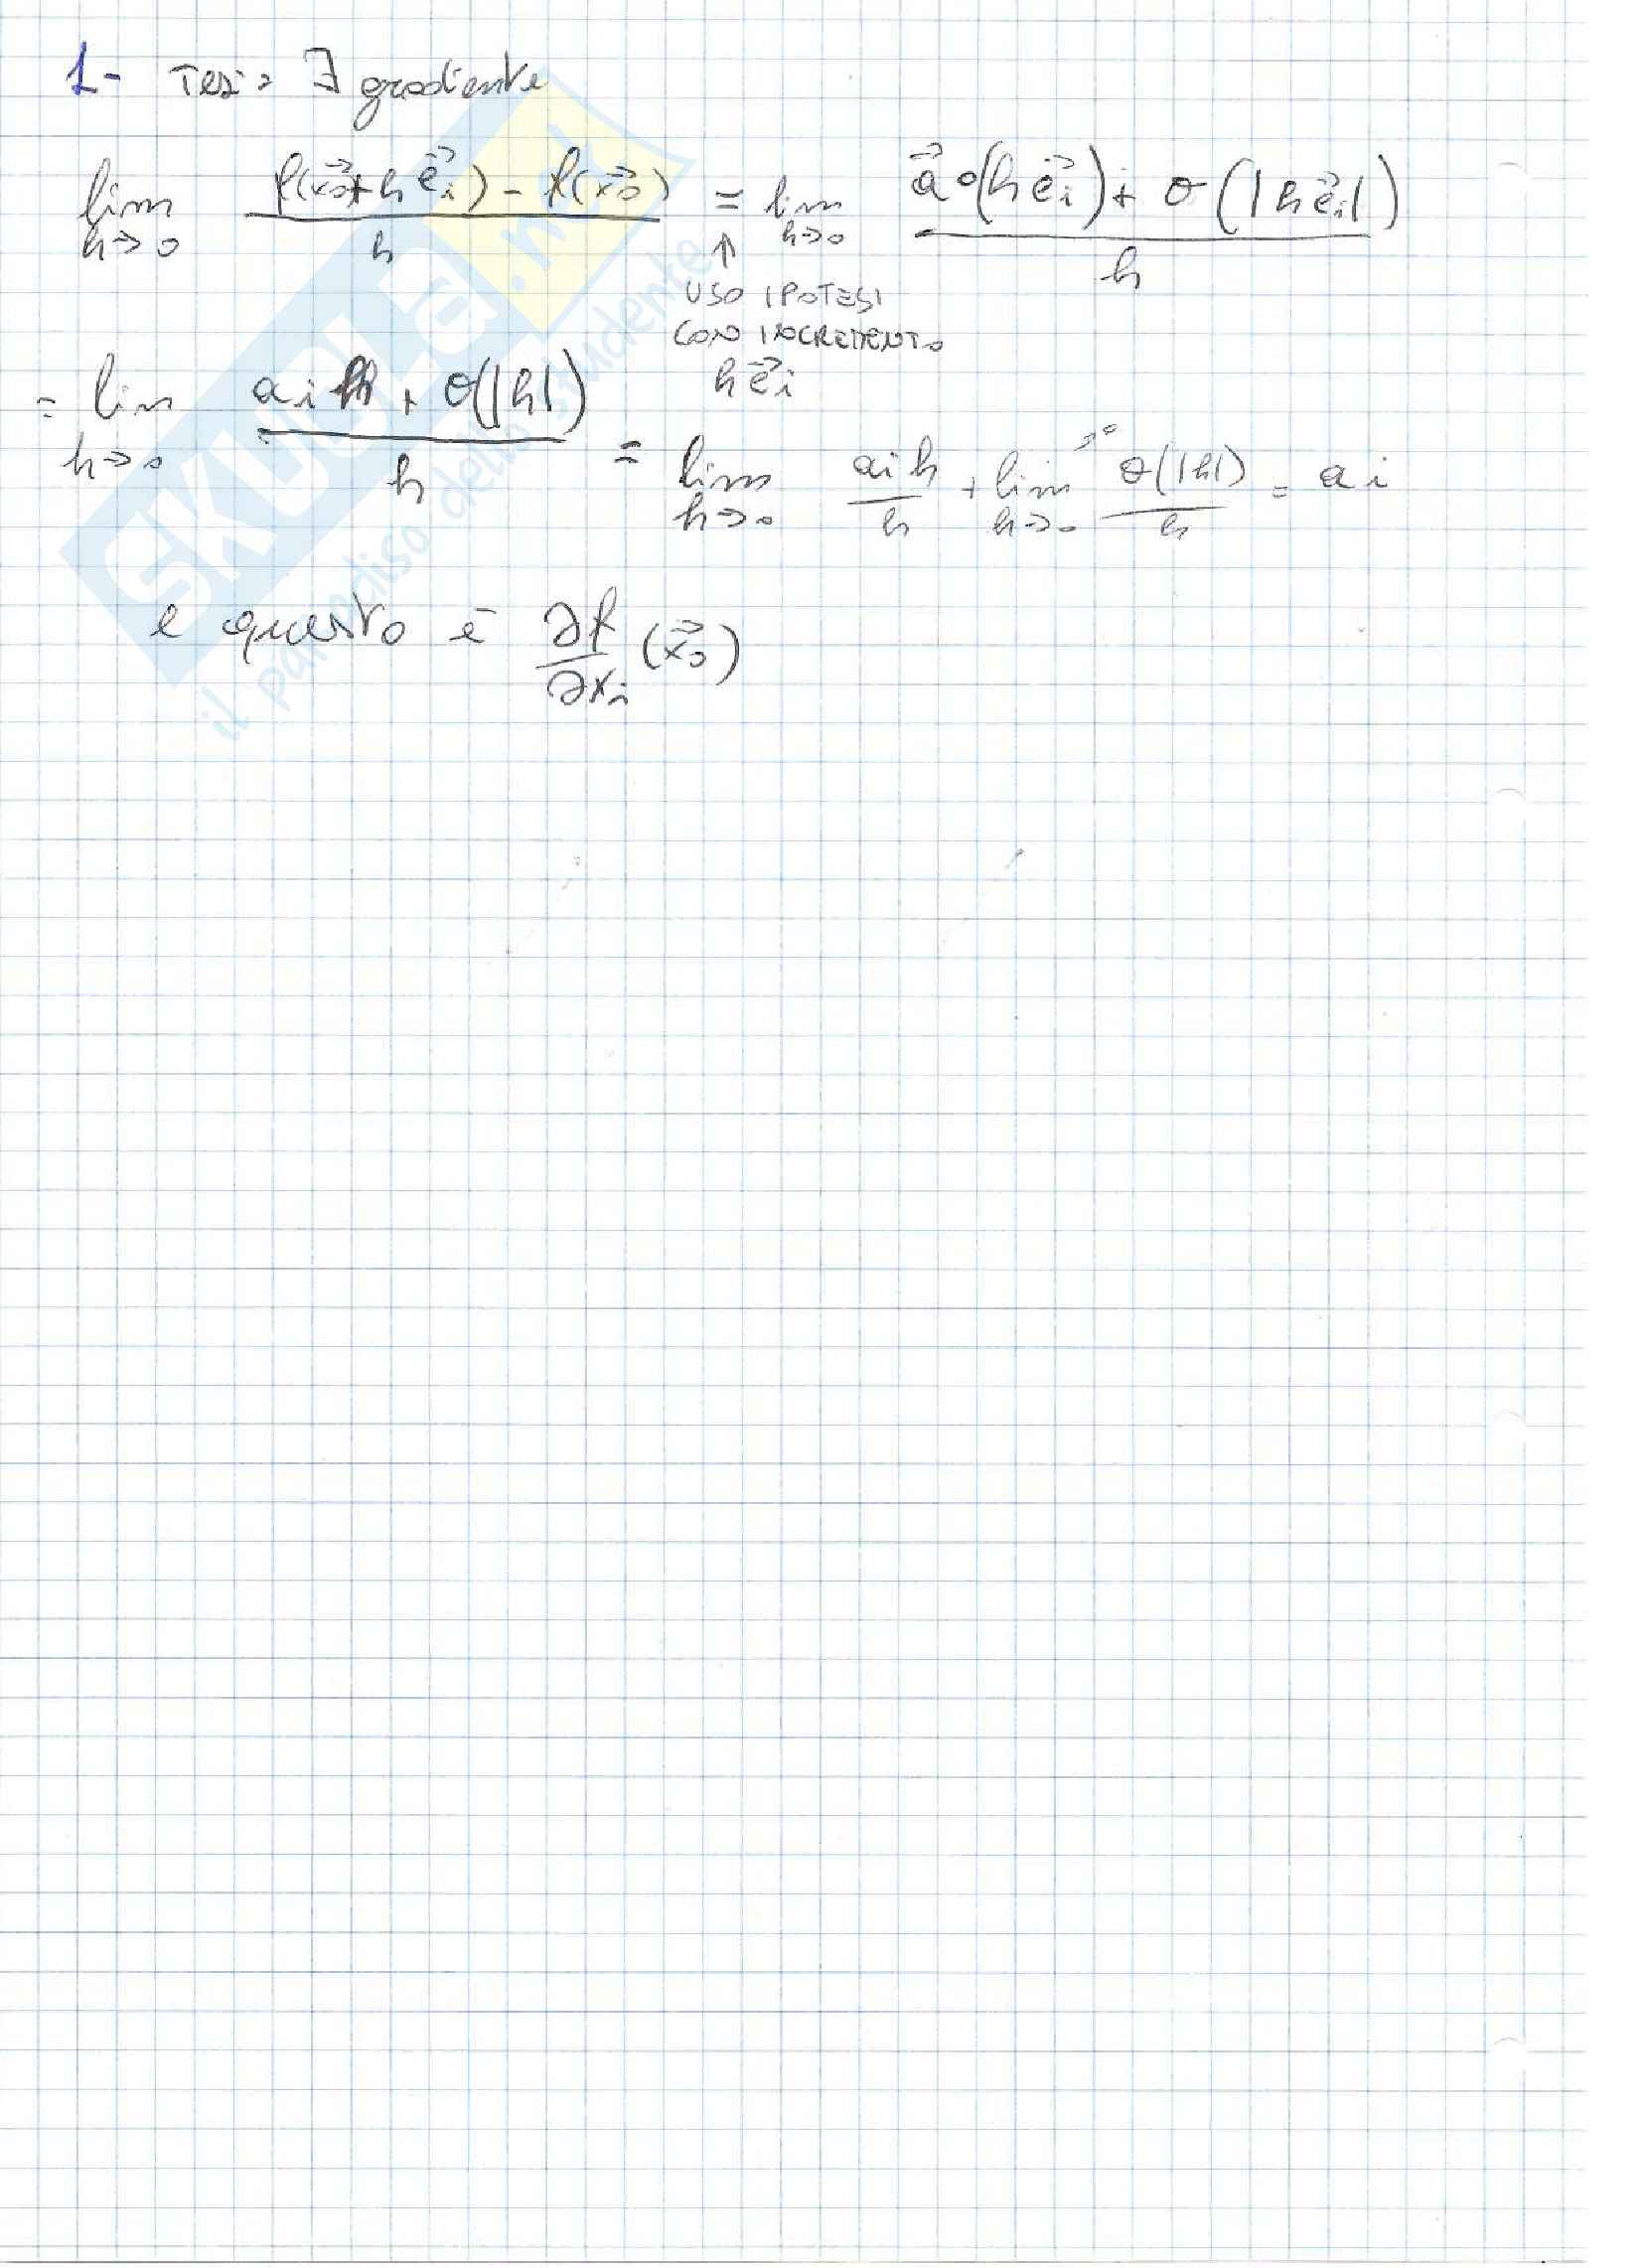 1- Tesi: ∃ gradiente
lim h→0 (f(x⃗₀+h e⃗ᵢ) - f(x⃗₀))/h = lim h→0 (a⃗∘(h e⃗ᵢ) + o(|h e⃗ᵢ|))/h
↑
USO IPOTESI
CON INCREMENTO
h e⃗ᵢ
= lim h→0 (aᵢ h + o(|h|))/h = lim h→0 aᵢh/h + lim h→0 o(|h|)/h →0 = aᵢ
e questo è ∂f/∂xᵢ (x⃗₀)
SKUOLA.net
il paradiso dello studente